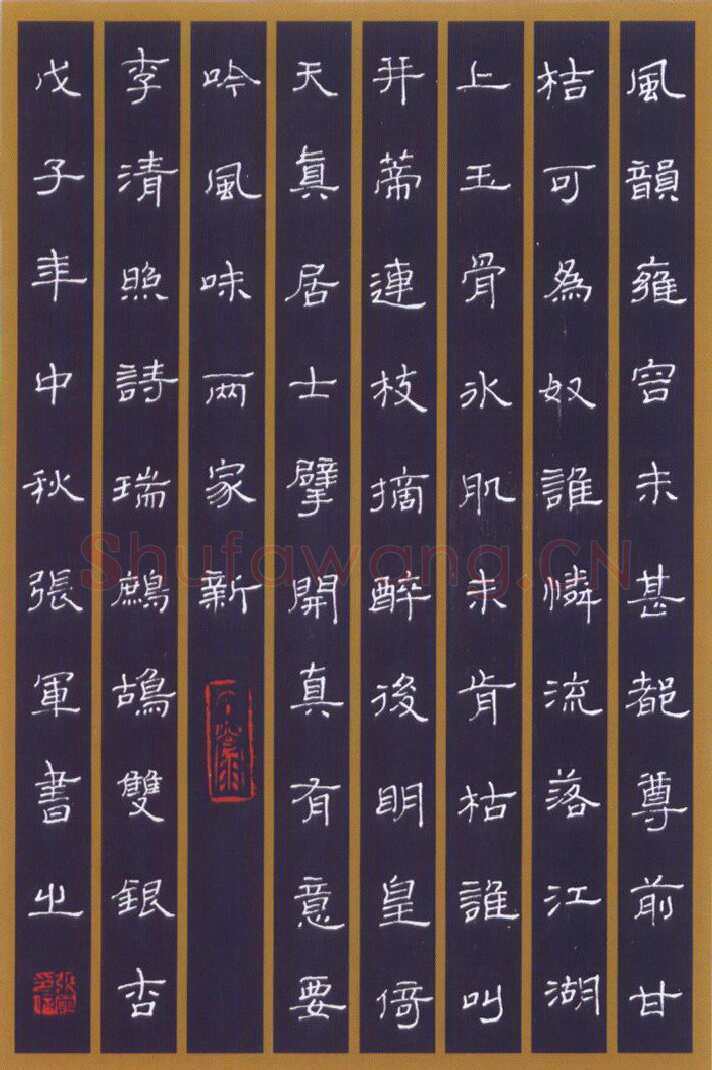 風韻雍容未甚都尊前甘
桔可為奴誰憐流落江湖
上玉骨氷肌未肯枯誰叫
并蒂連枝摘醉後明皇倚
天眞居士擘開真有意要
吟風味兩家新
李清照詩瑞鷓鴣雙銀杏
戊子年中秋張軍書之
Shufawang.CN